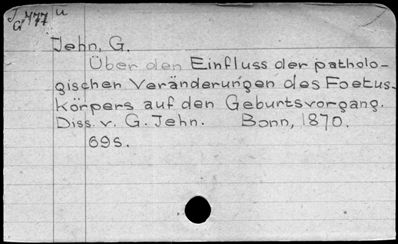 J 477 u
G
Jehn, G.
Über den Einfluss der patholo-
gischen Veränderungen des Foetus-
körpers auf den Geburtsvorgang.
Diss. v. G. Jehn. Bonn, 1870.
69s.